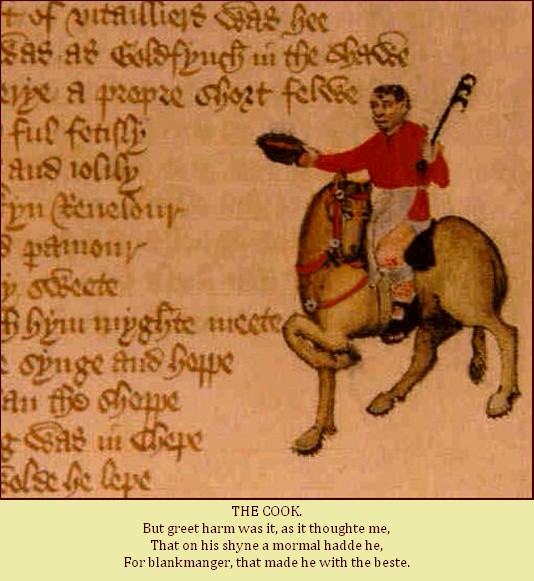 t of vitailliers was hee
was as Goldfynch in the shawe
erye a propre short felwe
ful fetisly
and iolily
fyn Reuelour
d pamour
y sweete
h hym myghte meete
e synge and hoppe
an the shoppe
g was in Chepe
wolde he lepe
THE COOK.
But greet harm was it, as it thoughte me,
That on his shyne a mormal hadde he,
For blankmanger, that made he with the beste.